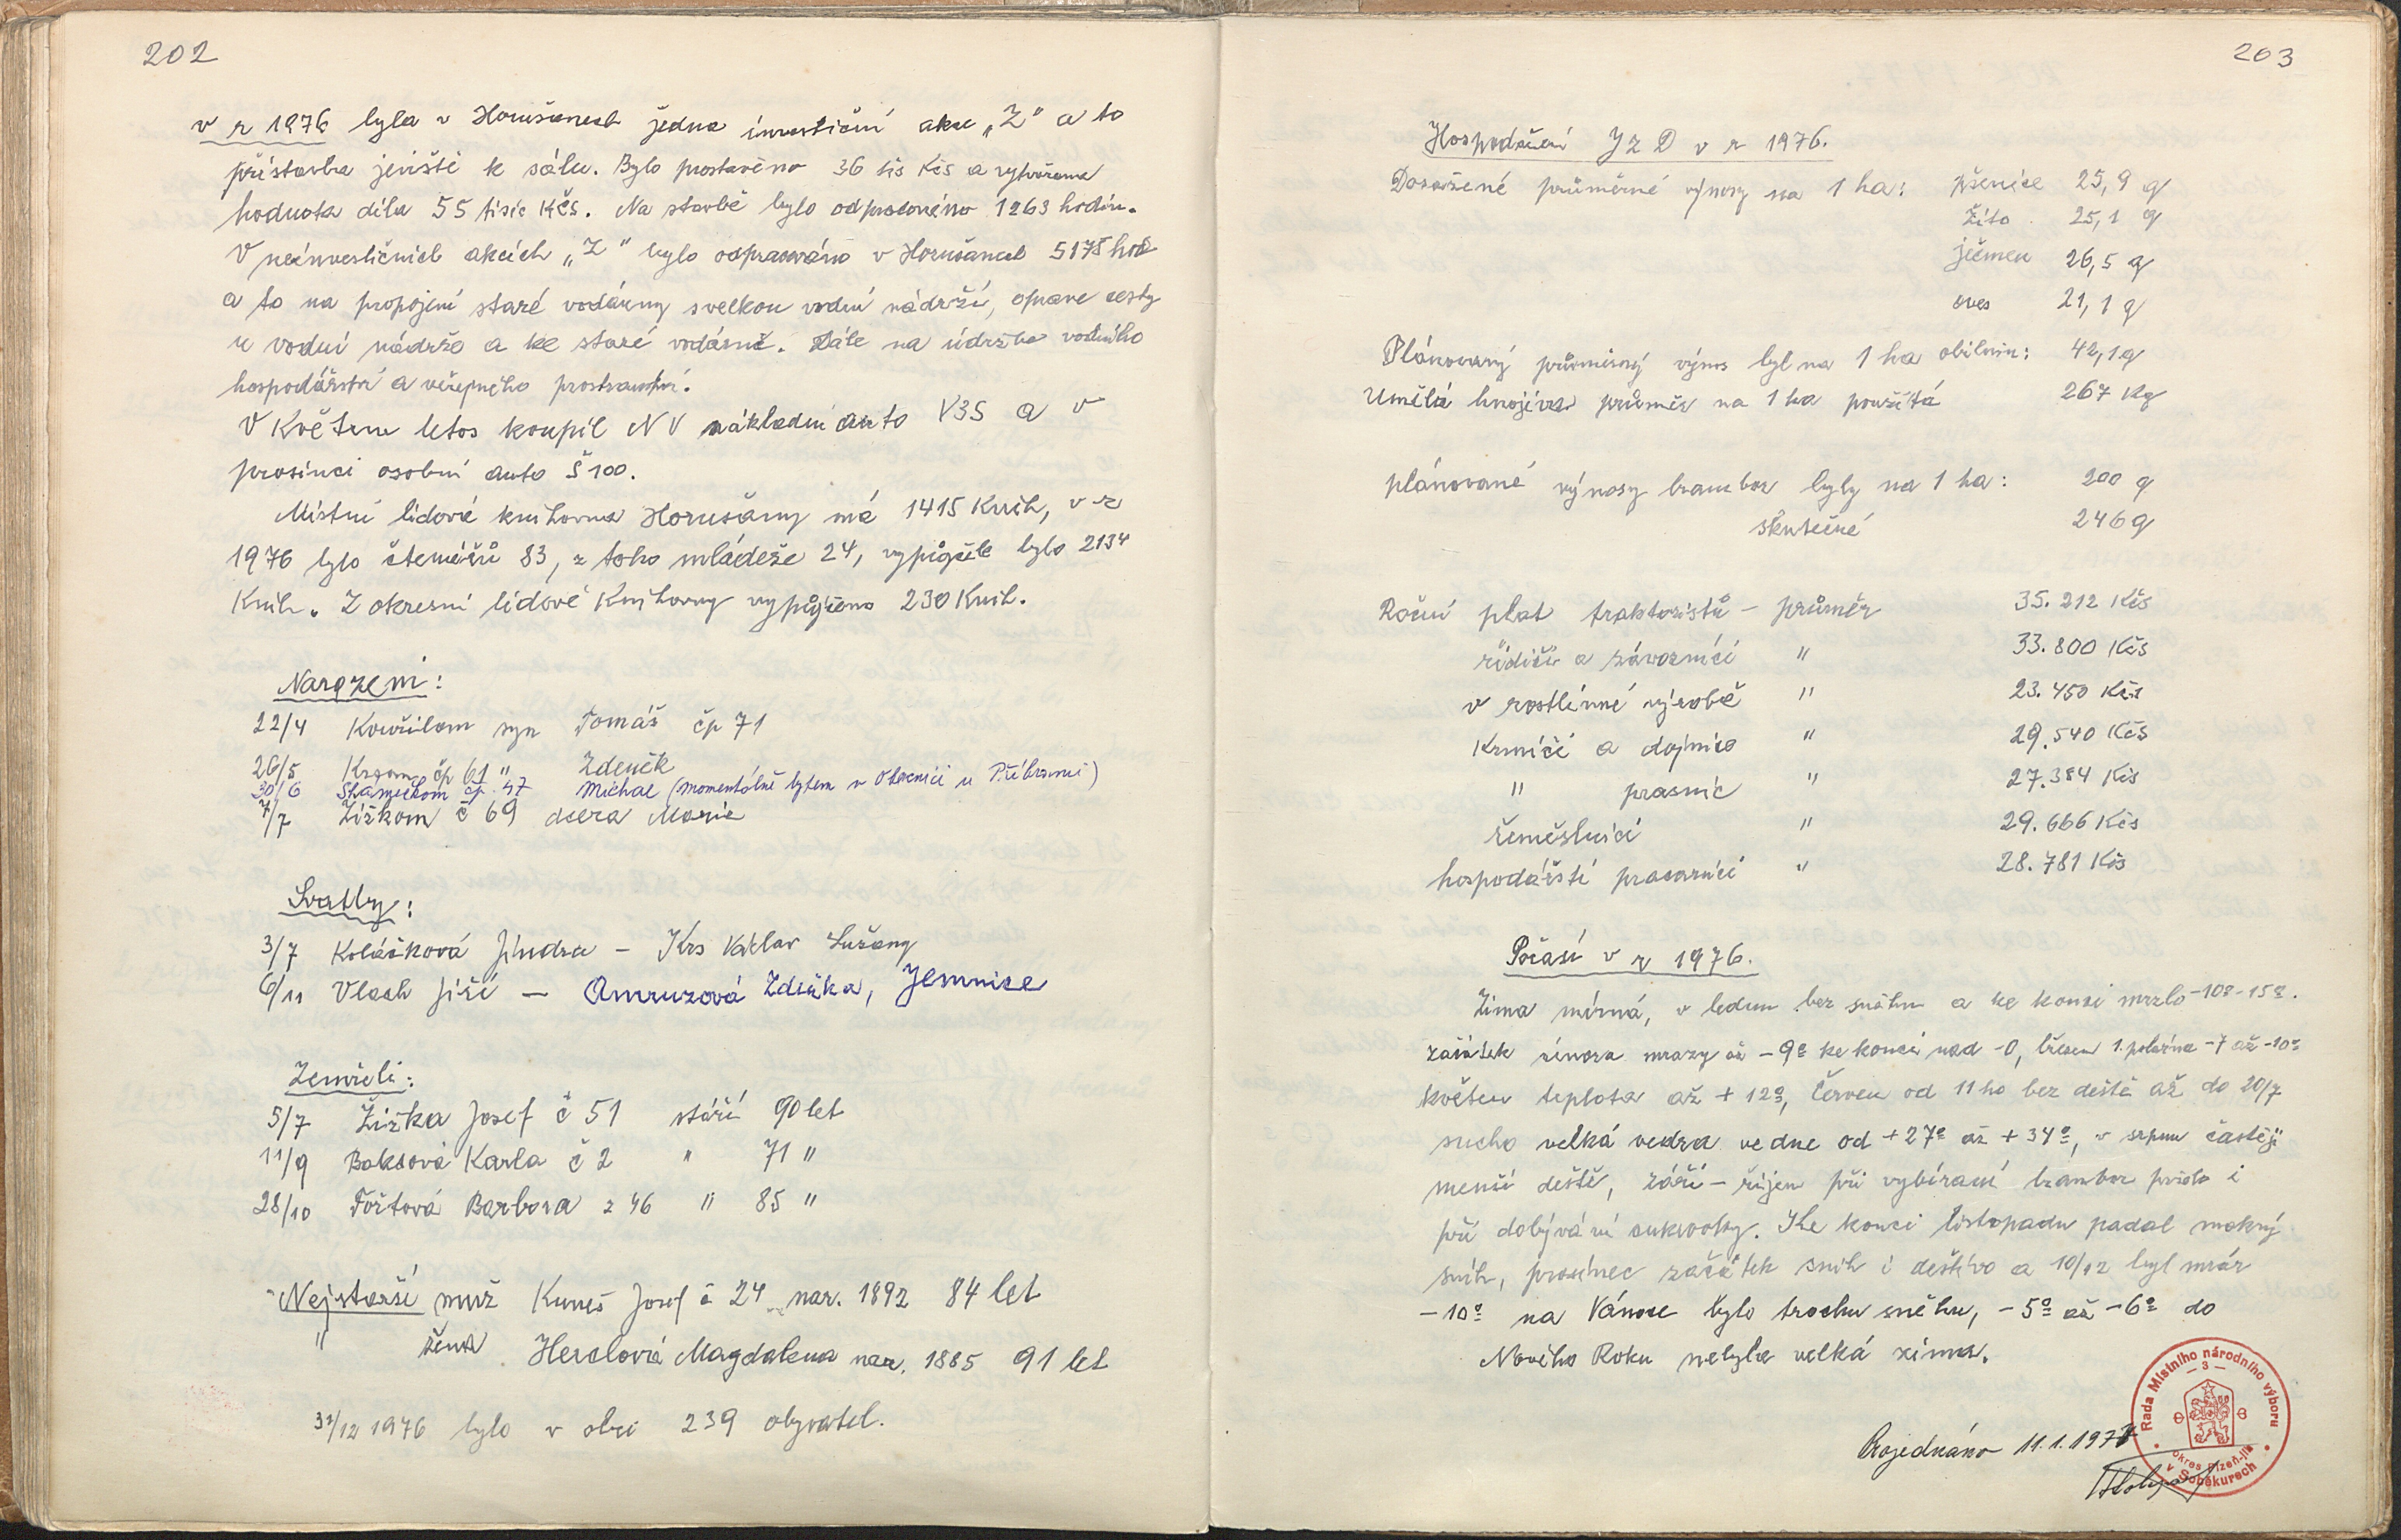 202
v r 1976 byla v Horušanech jedna investiční akce „Z" a to
přístavba jeviště k sálu. Bylo prostavěno 36 tis Kčs a vytvořena
hodnota díla 55 tisíc Kčs. Na stavbě bylo odpracováno 1263 hodin.
V neinvestičních akcích „Z" bylo odpracováno v Horušanech 5178 hod
a to na propojení staré vodárny s velkou vodní nádrží, oprave cesty
u vodní nádrže a ke staré vodárně. Dále na údržbe vodního
hospodářství a veřejného prostranství.
V Květnu letos koupil NV nákladní auto V3S a v
prosinci osobní auto Š 100.
Místní lidová knihovna Horušany má 1415 Knih, v r
1976 bylo čtenářů 83, z toho mládeže 24, vypůjček bylo 2134
Knih. Z okresní lidové Knihovny vypůjčeno 230 Knih.
Narozeni:
22/4 syn Tomáš čp 71
26/5 čp 61 " Zdeněk
30/6 čp. 47 Michal (momentálně bytem v Obecnici u Příbrami)
7/7 Žižkom č 69 dcera Marie
Svatby:
3/7 Kolářková Jindra - Krs Václav Lužany
6/11 Vlach Jiří - Zdeňka, Jemnice
Zemřeli:
5/7 Žižka Josef č 51 stáří 90 let
11/9 Boksová Karla č 2 " 71 "
28/10 Tořtová Barbora z 46 " 85 "
Nejstarší muž Kuneš Josef č 24 nar. 1892 84 let
" žena Herclová Magdalena nar. 1885 91 let
31/12 1976 bylo v obci 239 obyvatel.
203
Hospodaření JZD v r 1976.
Dosažené průměrné výnosy na 1 ha: pšenice 25,9 q
žito 25,1 q
ječmen 26,5 q
oves 21,1 q
Plánovaný průměrný výnos byl na 1 ha obilnin: 42,1 q
Umělá hnojiva průměr na 1 ha použitá 267 Kg
plánované výnosy brambor byly na 1 ha: 200 q
skutečné 246 q
Roční plat traktoristů - průměr 35.212 Kčs
řidiči a závozníci " 33.800 Kčs
v rostlinné výrobě " 23.450 Kčs
Krmiči a dojnic " 29.540 Kčs
" prasnic " 27.384 Kčs
řemeslníci " 29.666 Kčs
hospodářští pracovníci " 28.781 Kčs
Počasí v r 1976.
Zima mírná, v lednu bez sněhu a ke konci mrzlo -10º-15º.
začátek února mrazy až -9º ke konci nad -0, březen 1. polovina -7 až -10º
květen teplota až + 12º, Červen od 11 ho bez deště až do 20/7
sucho velká vedra ve dne od +27º až +34º, v srpnu častěji
menší deště, září - říjen při vybíraní brambor pršelo i
při dobývání cukrovky. Ke konci listopadu padal mokrý
sníh, prosinec začátek sníh i deštivo a 10/12 byl mráz
-10º na Vánoce bylo trochu sněhu, -5º až -6º do
Nového Roku nebyla velká zima.
Projednáno 11.1.1977
Rada Místního národního výboru
- 3 -
okres Plzeň-jih
v Soběkurech